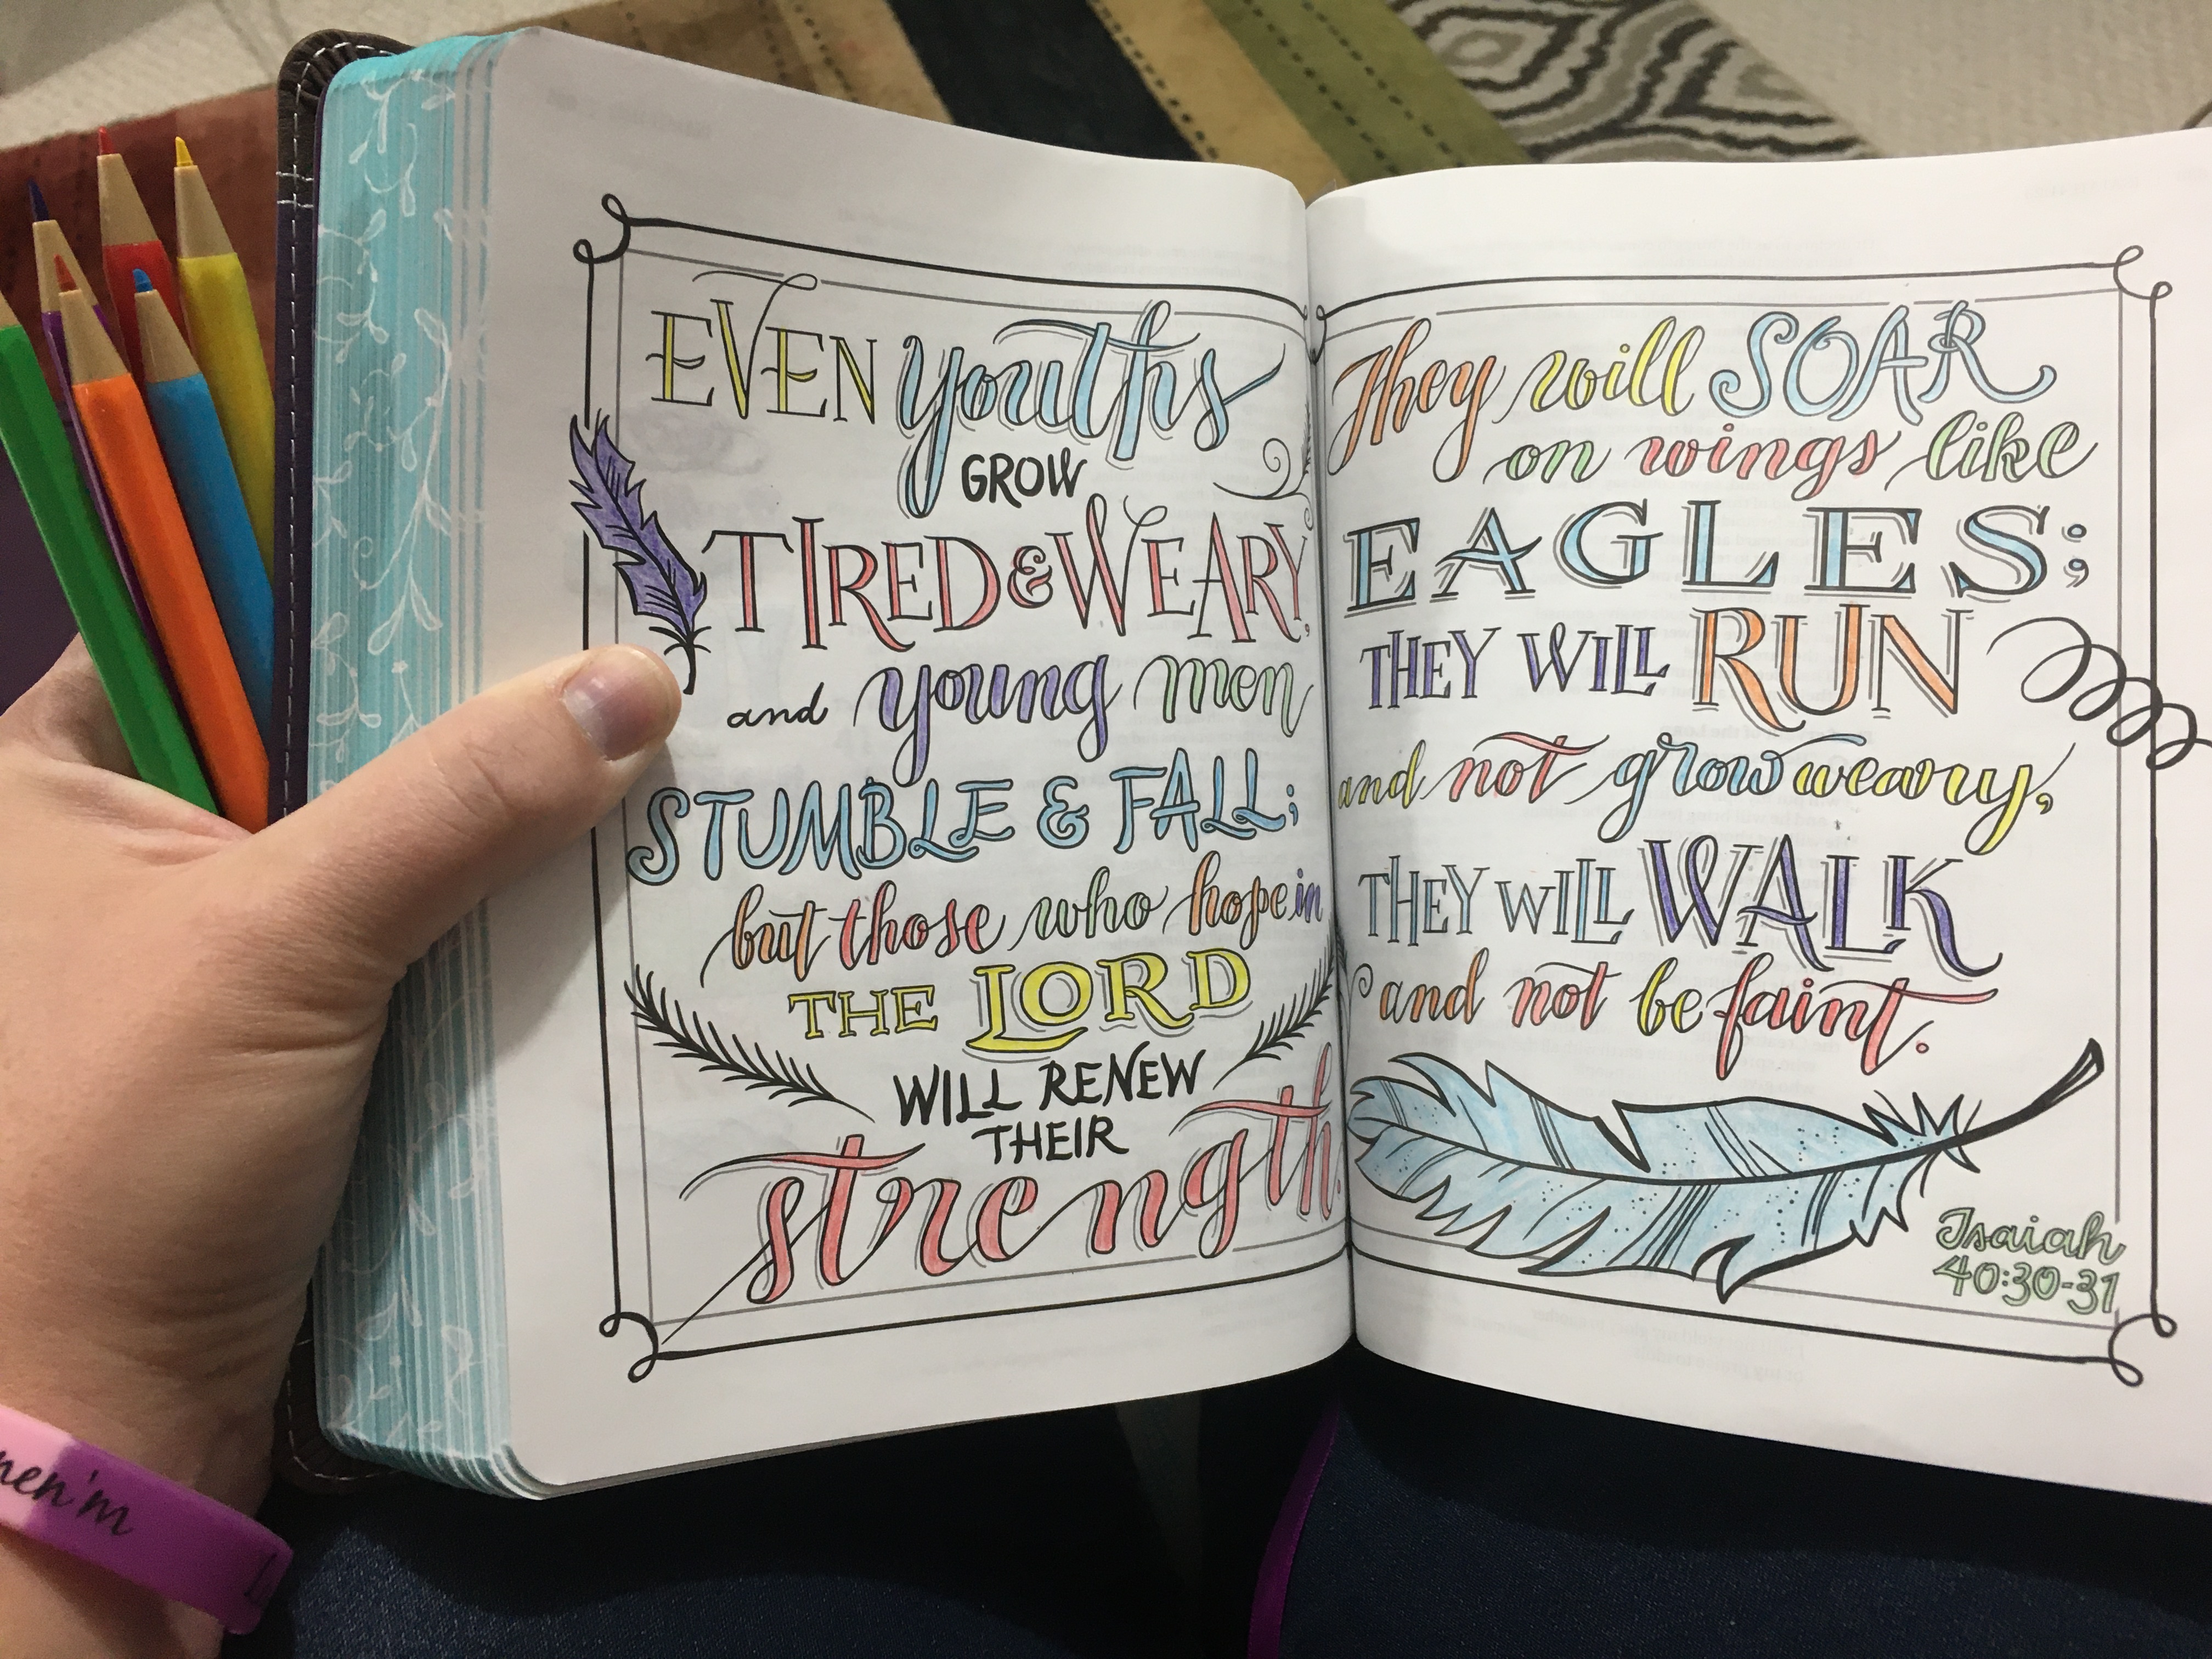 EVEN youths
GROW
TIRED & WEARY,
and young men
STUMBLE & FALL;
but those who hope in
THE LORD
WILL RENEW
THEIR
strength.
They will SOAR
on wings like
EAGLES;
THEY WILL RUN
and not grow weary,
THEY WILL WALK
and not be faint.
Isaiah
40:30-31